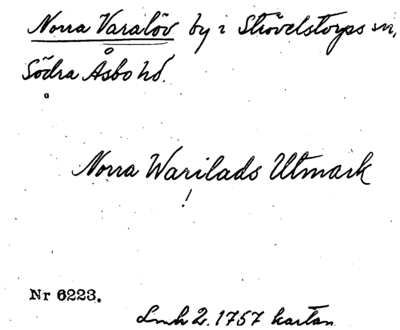 Norra Varalöv by i Strövelstorps sn,
Södra Åsbo hd.
Norra Warilads Utmark
!
Nr 6223.
Lmh 2. 1757 kartan